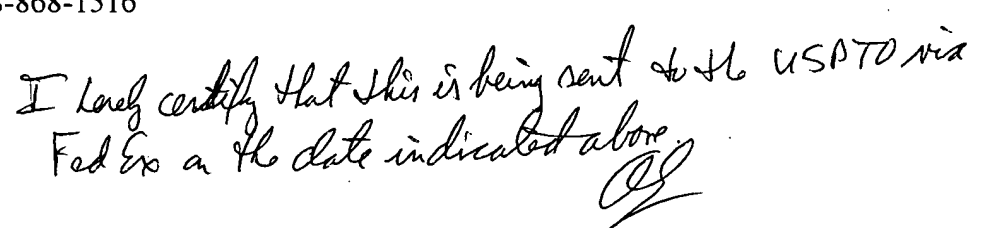 -868-1516
I hereby certify that this is being sent to the USPTO via
FedEx on the date indicated above.